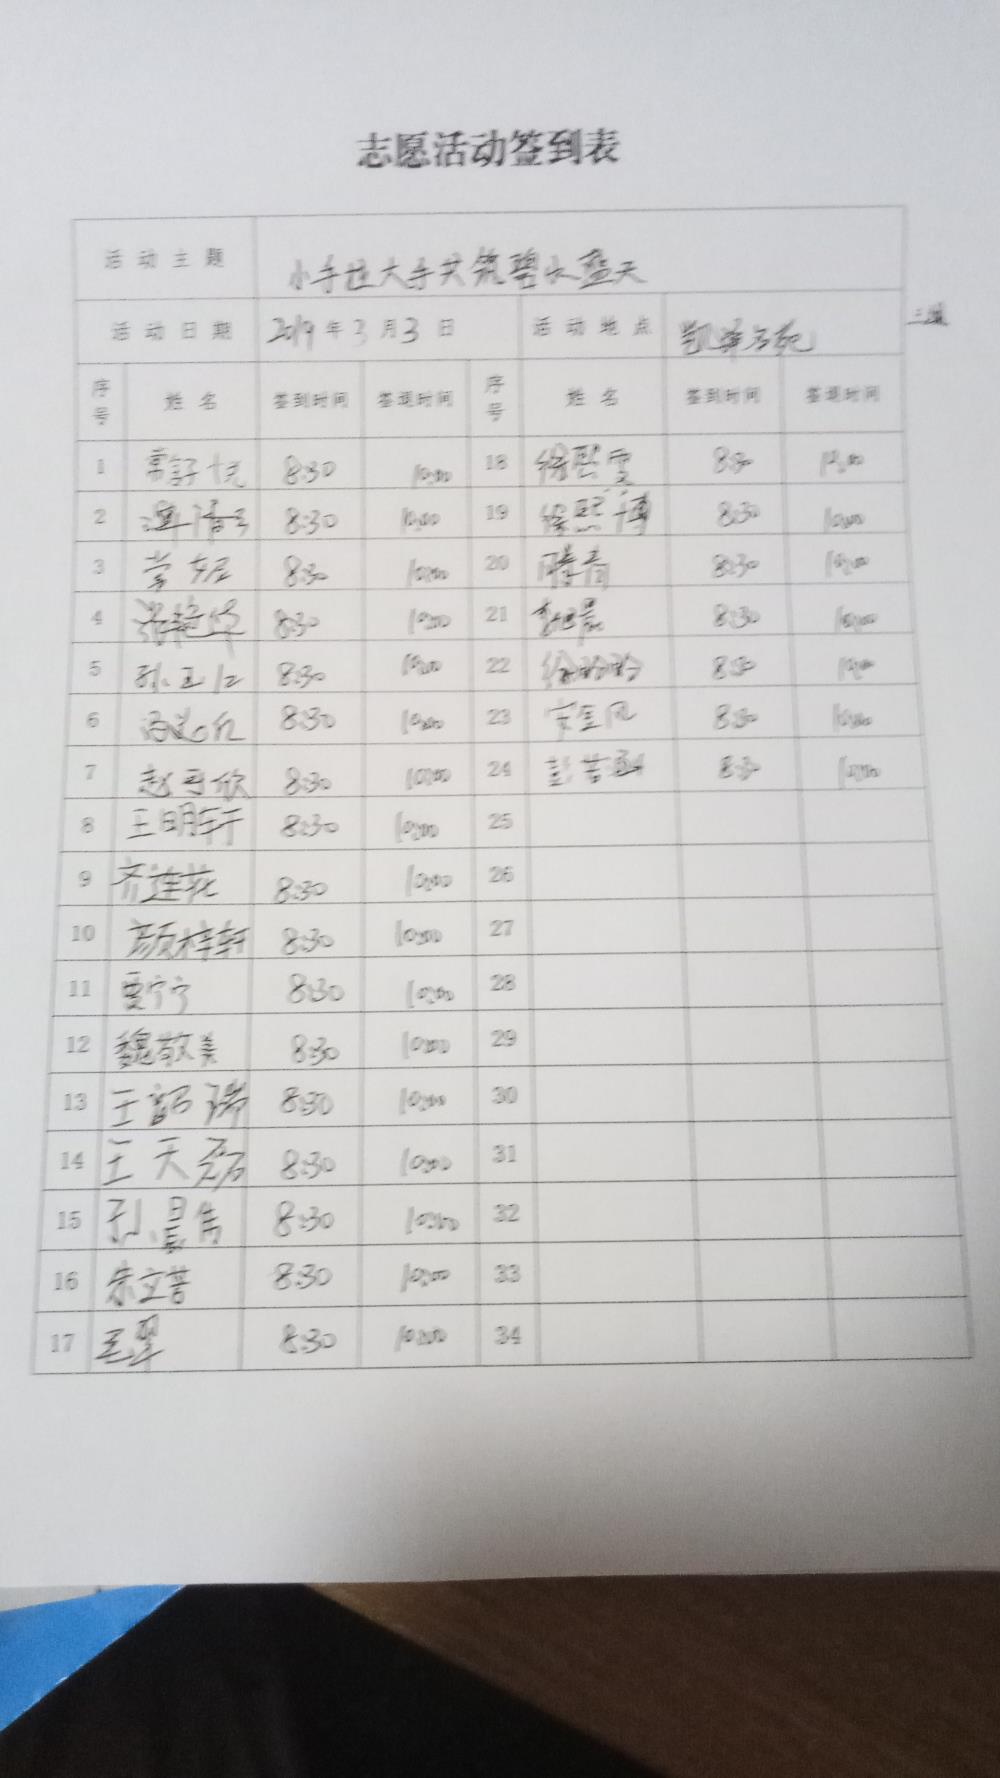 志愿活动签到表
活动主题 小手拉大手共筑碧水蓝天
活动日期 2019年3月3日 活动地点 凯华名苑
序号 姓名 签到时间 签退时间 序号 姓名 签到时间 签退时间
1 常舒悦 8:30 10:00 18 徐熙雯 8:30 10:00
2 8:30 10:00 19 徐熙博 8:30 10:00
3 常妮 8:30 10:00 20 8:30 10:00
4 8:30 10:00 21 8:30 10:00
5 孙玉江 8:30 10:00 22 8:30 10:00
6 8:30 10:00 23 安金凤 8:30 10:00
7 赵可欣 8:30 10:00 24 8:30 10:00
8 王明轩 8:30 10:00 25
9 齐莲花 8:30 10:00 26
10 颜梓轩 8:30 10:00 27
11 贾宁宁 8:30 10:00 28
12 魏敬美 8:30 10:00 29
13 王韶瑞 8:30 10:00 30
14 王天磊 8:30 10:00 31
15 8:30 10:00 32
16 8:30 10:00 33
17 王翠 8:30 10:00 34